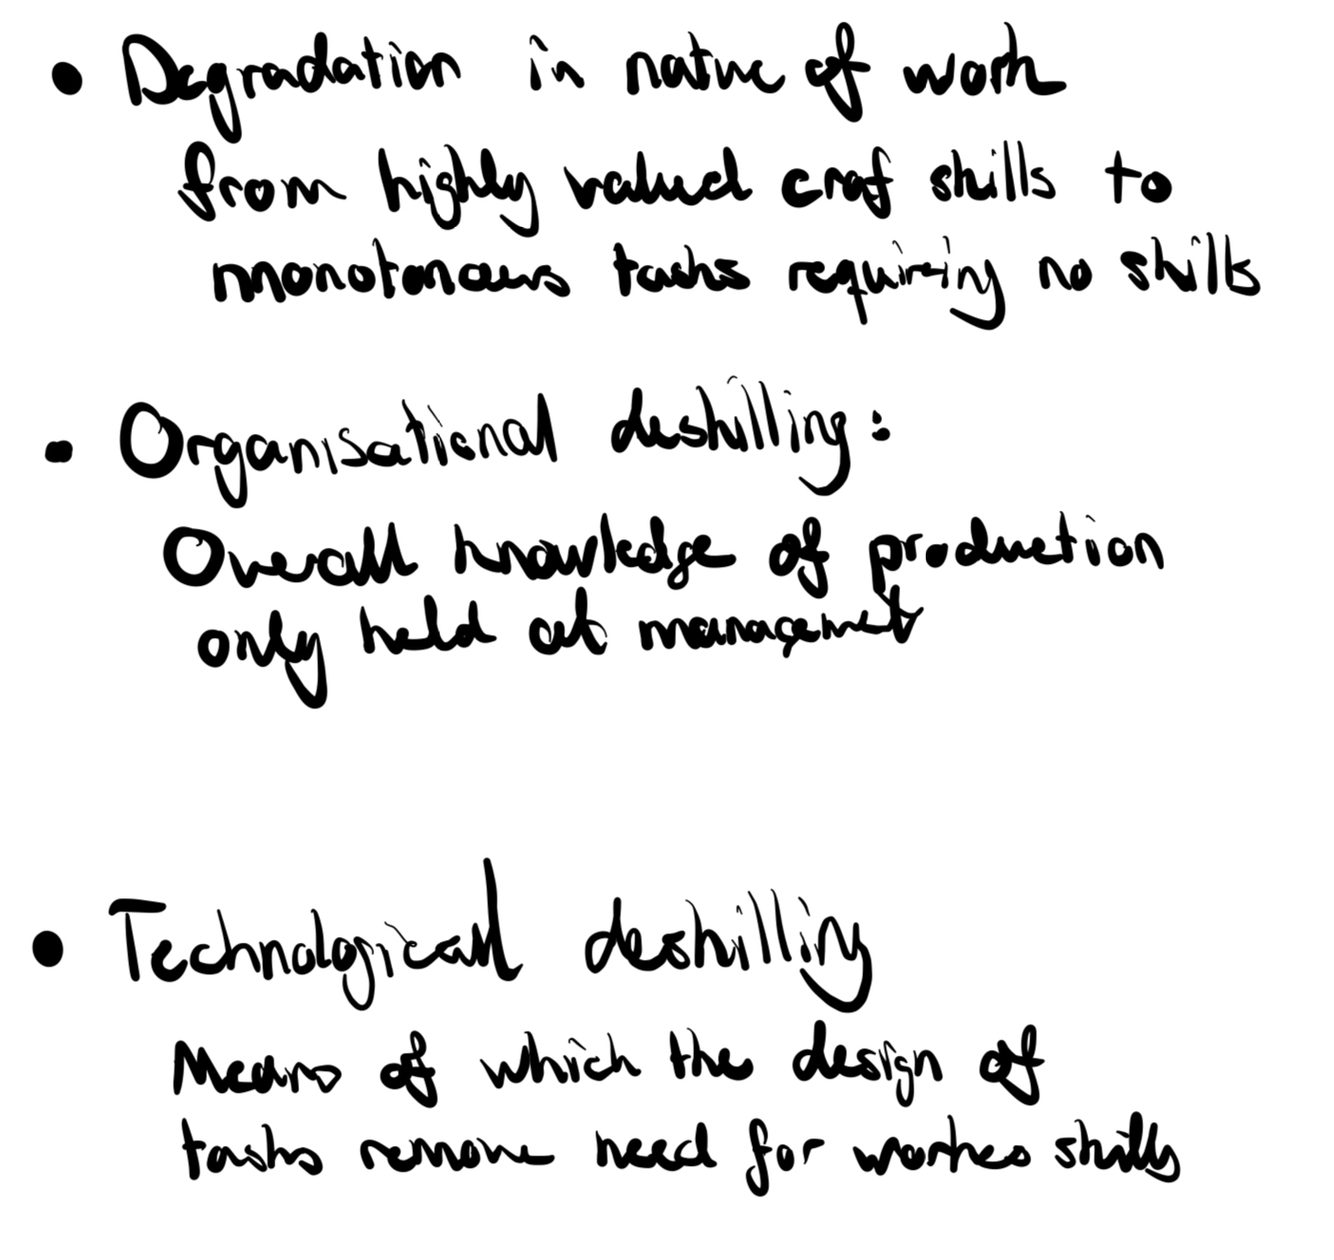 • Degradation in nature of work
from highly valued craf skills to
monotonous tasks requireing no skills
• Organisational deskilling:
Overall knowledge of production
only held at management
• Technological deskilling
Means of which the design of
tasks remove need for workes skills